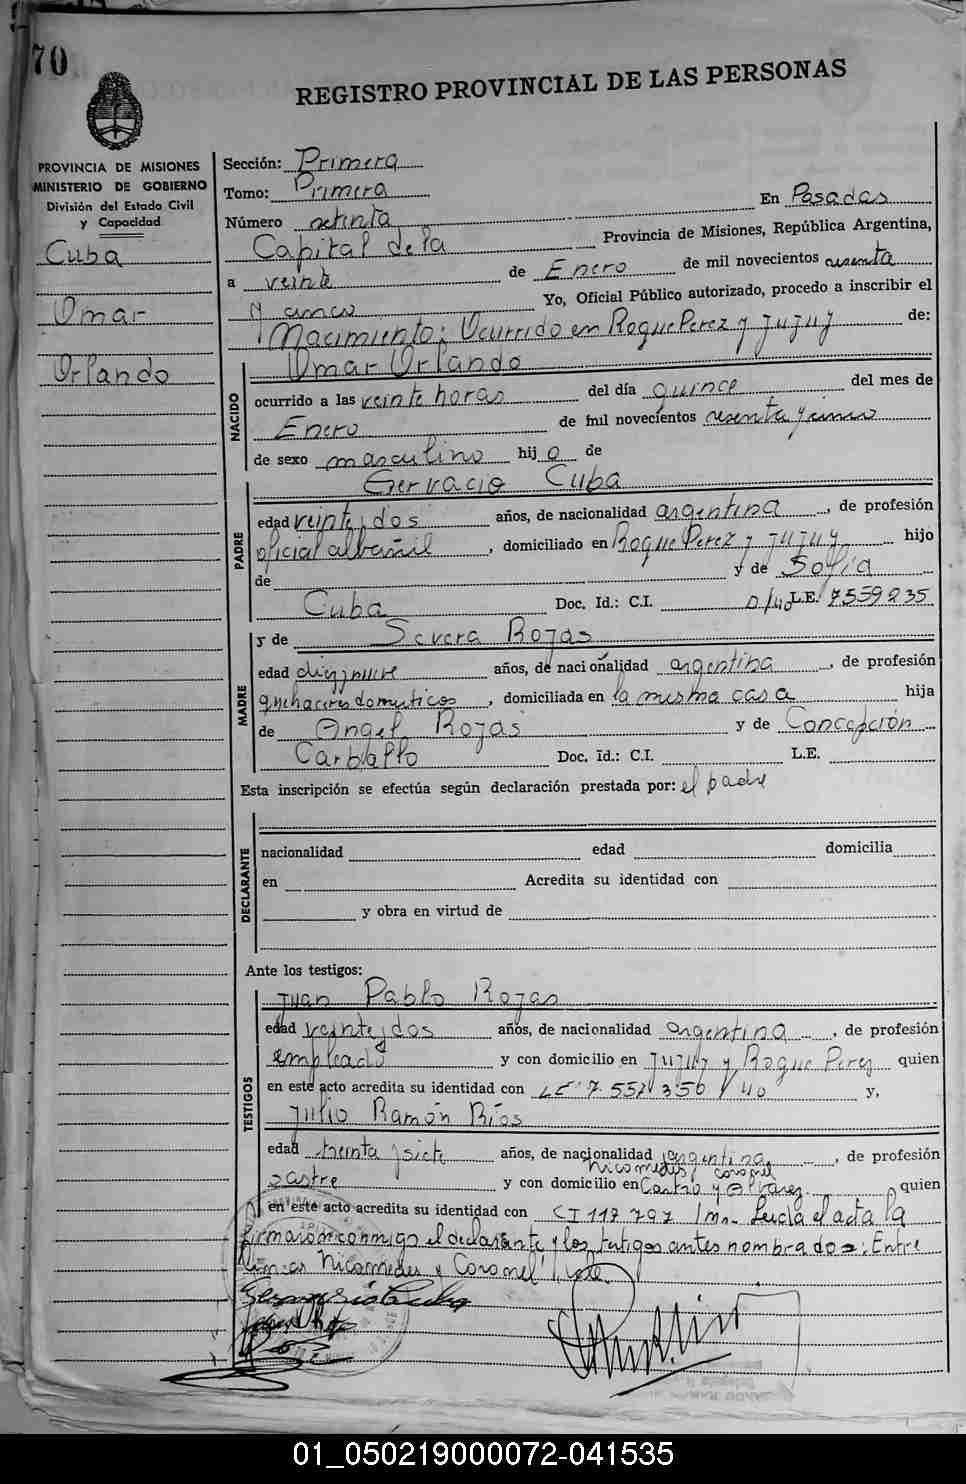 70
REGISTRO PROVINCIAL DE LAS PERSONAS
PROVINCIA DE MISIONES
MINISTERIO DE GOBIERNO
División del Estado Civil
y Capacidad
Cuba
Omar
Orlando
Sección: Primera
Tomo: Primera
Número setenta En Posadas
Capital de la Provincia de Misiones, República Argentina,
a veinte de Enero de mil novecientos sesenta
y cinco Yo, Oficial Público autorizado, procedo a inscribir el
Nacimiento: Ocurrido en Roque Perez y Jujuy de:
Omar Orlando
NACIDO
ocurrido a las veinte horas del día quince del mes de
Enero de mil novecientos sesenta y cinco
de sexo masculino hijo de
Gervacio Cuba
PADRE
edad veinte y dos años, de nacionalidad argentina, de profesión
oficial albañil, domiciliado en Roque Perez y Jujuy hijo
de y de Sofía
Cuba Doc. Id.: C.I. D/40 L.E. 7559235
y de Severa Rojas
MADRE
edad diez y nueve años, de nacionalidad argentina, de profesión
quehaceres domesticos, domiciliada en la misma casa hija
de Angel Rojas y de Concepción
Carballo Doc. Id.: C.I. L.E.
Esta inscripción se efectúa según declaración prestada por: el padre
DECLARANTE
nacionalidad edad domicilia
en Acredita su identidad con
y obra en virtud de
Ante los testigos:
Juan Pablo Rojas
TESTIGOS
edad veinte y dos años, de nacionalidad argentina, de profesión
empleado y con domicilio en Jujuy y Roque Perez quien
en este acto acredita su identidad con LE 7.551.356 / 40 y,
Julio Ramón Ríos
edad treinta y siete años, de nacionalidad argentina, de profesión
Nicomedes coronel
sastre y con domicilio en Castro y Alvarez quien
en este acto acredita su identidad con CI 117797 / Mn. Leida el acta la
firmaron conmigo el declarante y los testigos antes nombrados: Entre
lineas "Nicomedes y Coronel", vale.
01_050219000072-041535